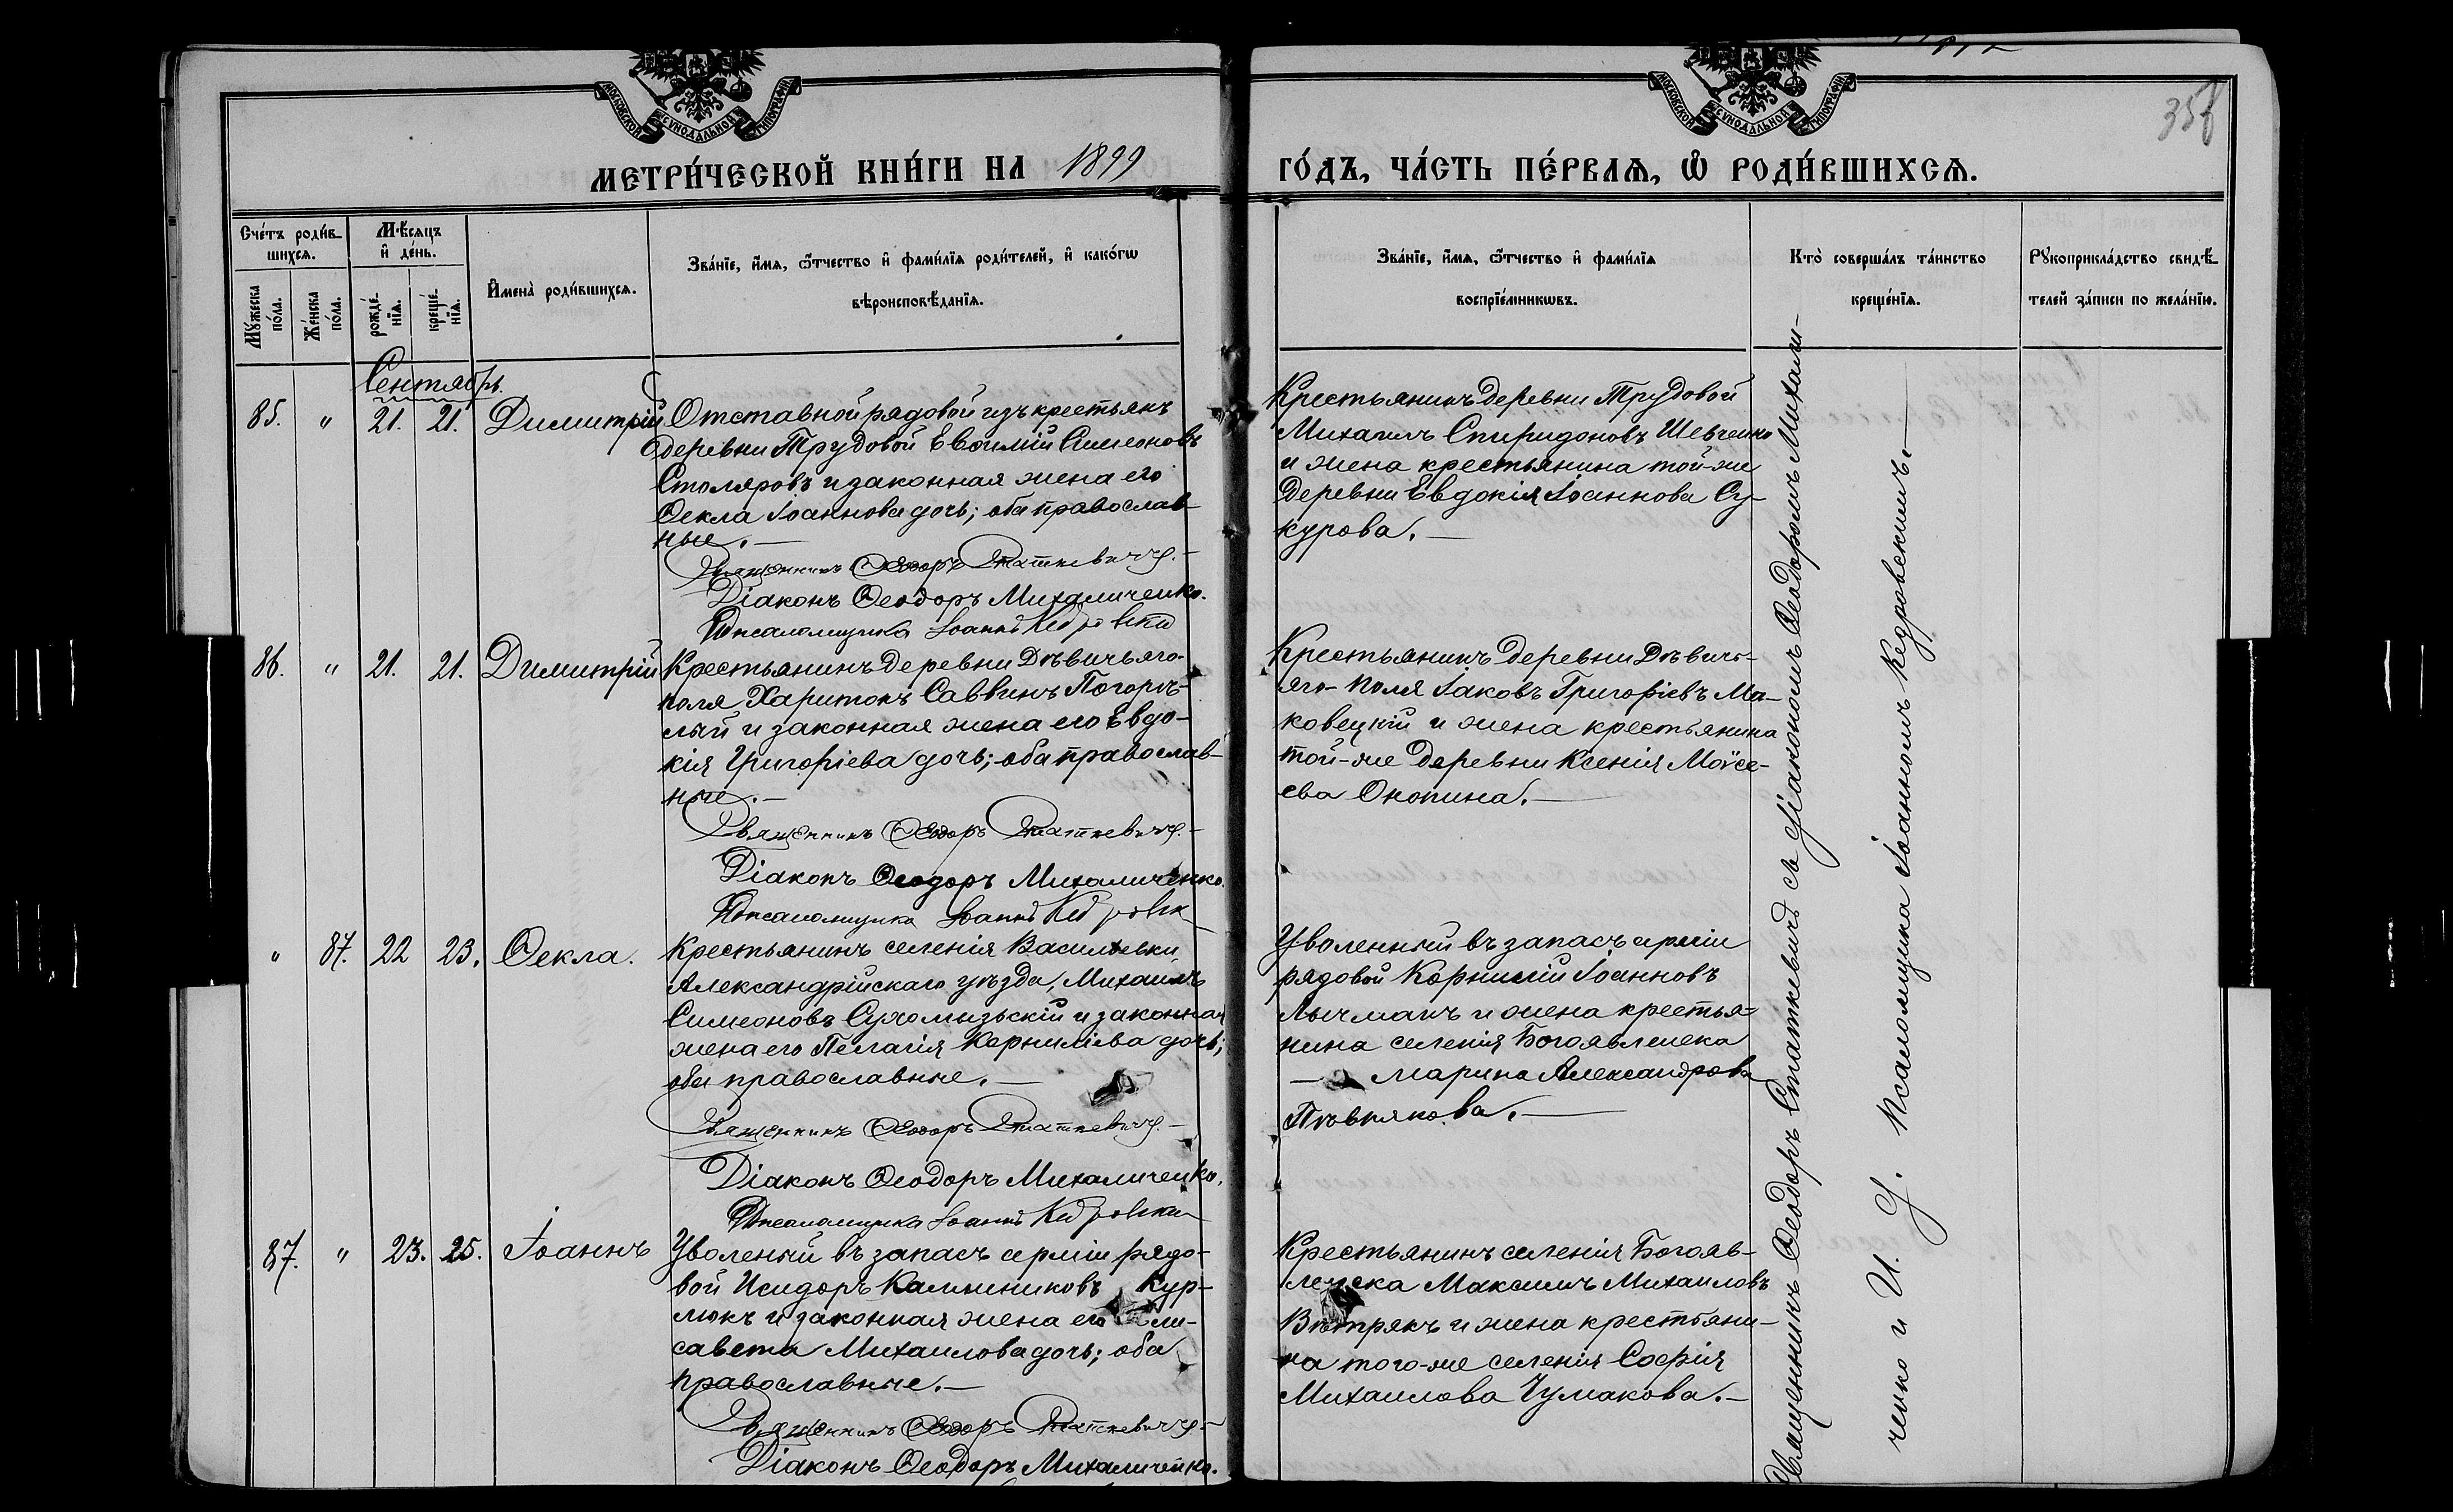 МОСКОВСКОЙ СѴНОДАЛЬНОЙ ТИПОГРАФІИ
МОСКОВСКОЙ СѴНОДАЛЬНОЙ ТИПОГРАФІИ
358
МЕТРИ́ЧЕСКОЙ КНИ́ГИ НА 1899
ГО́ДЪ, ЧА́СТЬ ПЕ́РВАѦ, Ѽ РОДИ́ВШИХСѦ.
Сче́тъ роди́в-
шихсѧ.
Мꙋ́жеска по́ла.
Же́нска по́ла.
Мѣ́сѧцъ
и҆ де́нь.
рожде́-
нїѧ.
креще́-
нїѧ.
И҆мена̀ роди́вшихсѧ.
Зва́нїе, и҆́мѧ, ѻ҆́тчество и҆ фами́лїѧ роди́телей, и҆ како́гѡ
вѣроисповѣ́данїѧ.
Зва́нїе, и҆́мѧ, ѻ҆́тчество и҆ фами́лїѧ
воспрїе́мникѡвъ.
Кто̀ соверша́лъ та́инство
креще́нїѧ.
Рꙋкоприкла́дство свидѣ́-
телей за́писи по жела́нїю.
Сентябрь.
85. " 21. 21. Димитрій
Отставной рядовой изъ крестьянъ
деревни Трудовой Евѳимій Симеоновъ
Столяровъ и законная жена его
Ѳекла Іоаннова дочь; оба православ-
ные.—
Священникъ Ѳеодоръ Статкевичъ.—
Діаконъ Ѳеодоръ Михаличенко.
Псаломщикъ Іоаннъ Кедровскій
Крестьянинъ деревни Трудовой
Михаилъ Спиридоновъ Шевченко
и жена крестьянина той-же
деревни Евдокія Іоаннова Су-
курова.—
86. " 21. 21. Димитрій
Крестьянинъ деревни Дѣвичьяго-
поля Харитонъ Саввинъ Погорѣ-
лый и законная жена его Евдо-
кія Григоріева дочь; оба православ-
ные.—
Священникъ Ѳеодоръ Статкевичъ.—
Діаконъ Ѳеодоръ Михаличенко.
Псаломщикъ Іоаннъ Кедровск
Крестьянинъ деревни Дѣвичь-
яго-поля Іаковъ Григоріевъ Ма-
ковецкій и жена крестьянина
той-же деревни Ксенія Моѵсе-
ева Онопина.—
" 87. 22 23. Ѳекла.
Крестьянинъ селенія Васильевки,
Александрійскаго уѣзда, Михаилъ
Симеоновъ Сухомызскій и законная
жена его Пелагія Корниліева дочь;
оба православные.—
Священникъ Ѳеодоръ Статкевичъ.—
Діаконъ Ѳеодоръ Михаличенко.
Псаломщикъ Іоаннъ Кедровскій
Уволенный въ запасъ арміи
рядовой Корнилій Іоанновъ
Лычманъ и жена крестья-
нина селенія Богоявленска
— Марина Александрова
Пѣвнякова.—
87. " 23. 25. Іоаннъ
Уволеный въ запасъ арміи рядо-
вой Исидоръ Калинниковъ Кур-
люкъ и законная жена его Ели-
савета Михаилова дочь; оба
православные.—
Священникъ Ѳеодоръ Статкевичъ.—
Діаконъ Ѳеодоръ Михаличенко.
Крестьянинъ селенія Богояв-
ленска Максимъ Михаиловъ
Вѣтрякъ и жена крестьяни-
на того-же селенія Софія
Михаилова Чумакова.—
Священникъ Ѳеодоръ Статкевичъ съ діакономъ Ѳеодоромъ Михали-
ченко и И. д. Псаломщика Іоанномъ Кедровскимъ.—